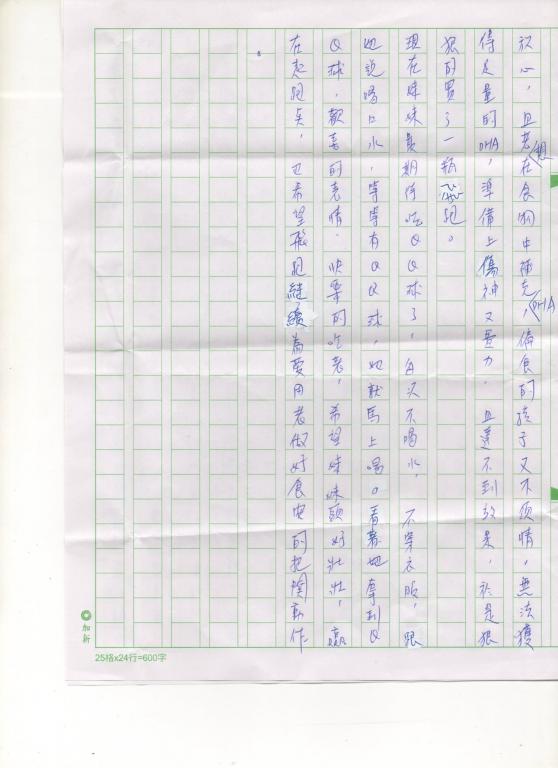 放心,且若想在食物中補充DHA,偏食的孩子又不領情,無法獲
得足量的DHA,準備上傷神又費力,且達不到效果,於是狠
狠的買了一瓶飛跑。
現在妹妹最期待吃QQ球了,每次不喝水,不穿衣服,跟
她說喝口水,等等有QQ球,她就馬上喝。看著她拿到Q
Q球,歡喜的表情,快樂的吃著,希望妹妹頭好壯壯,贏
在起跑點,也希望飛跑繼續為要用者做好食安的把關動作
加新
25格x24行=600字